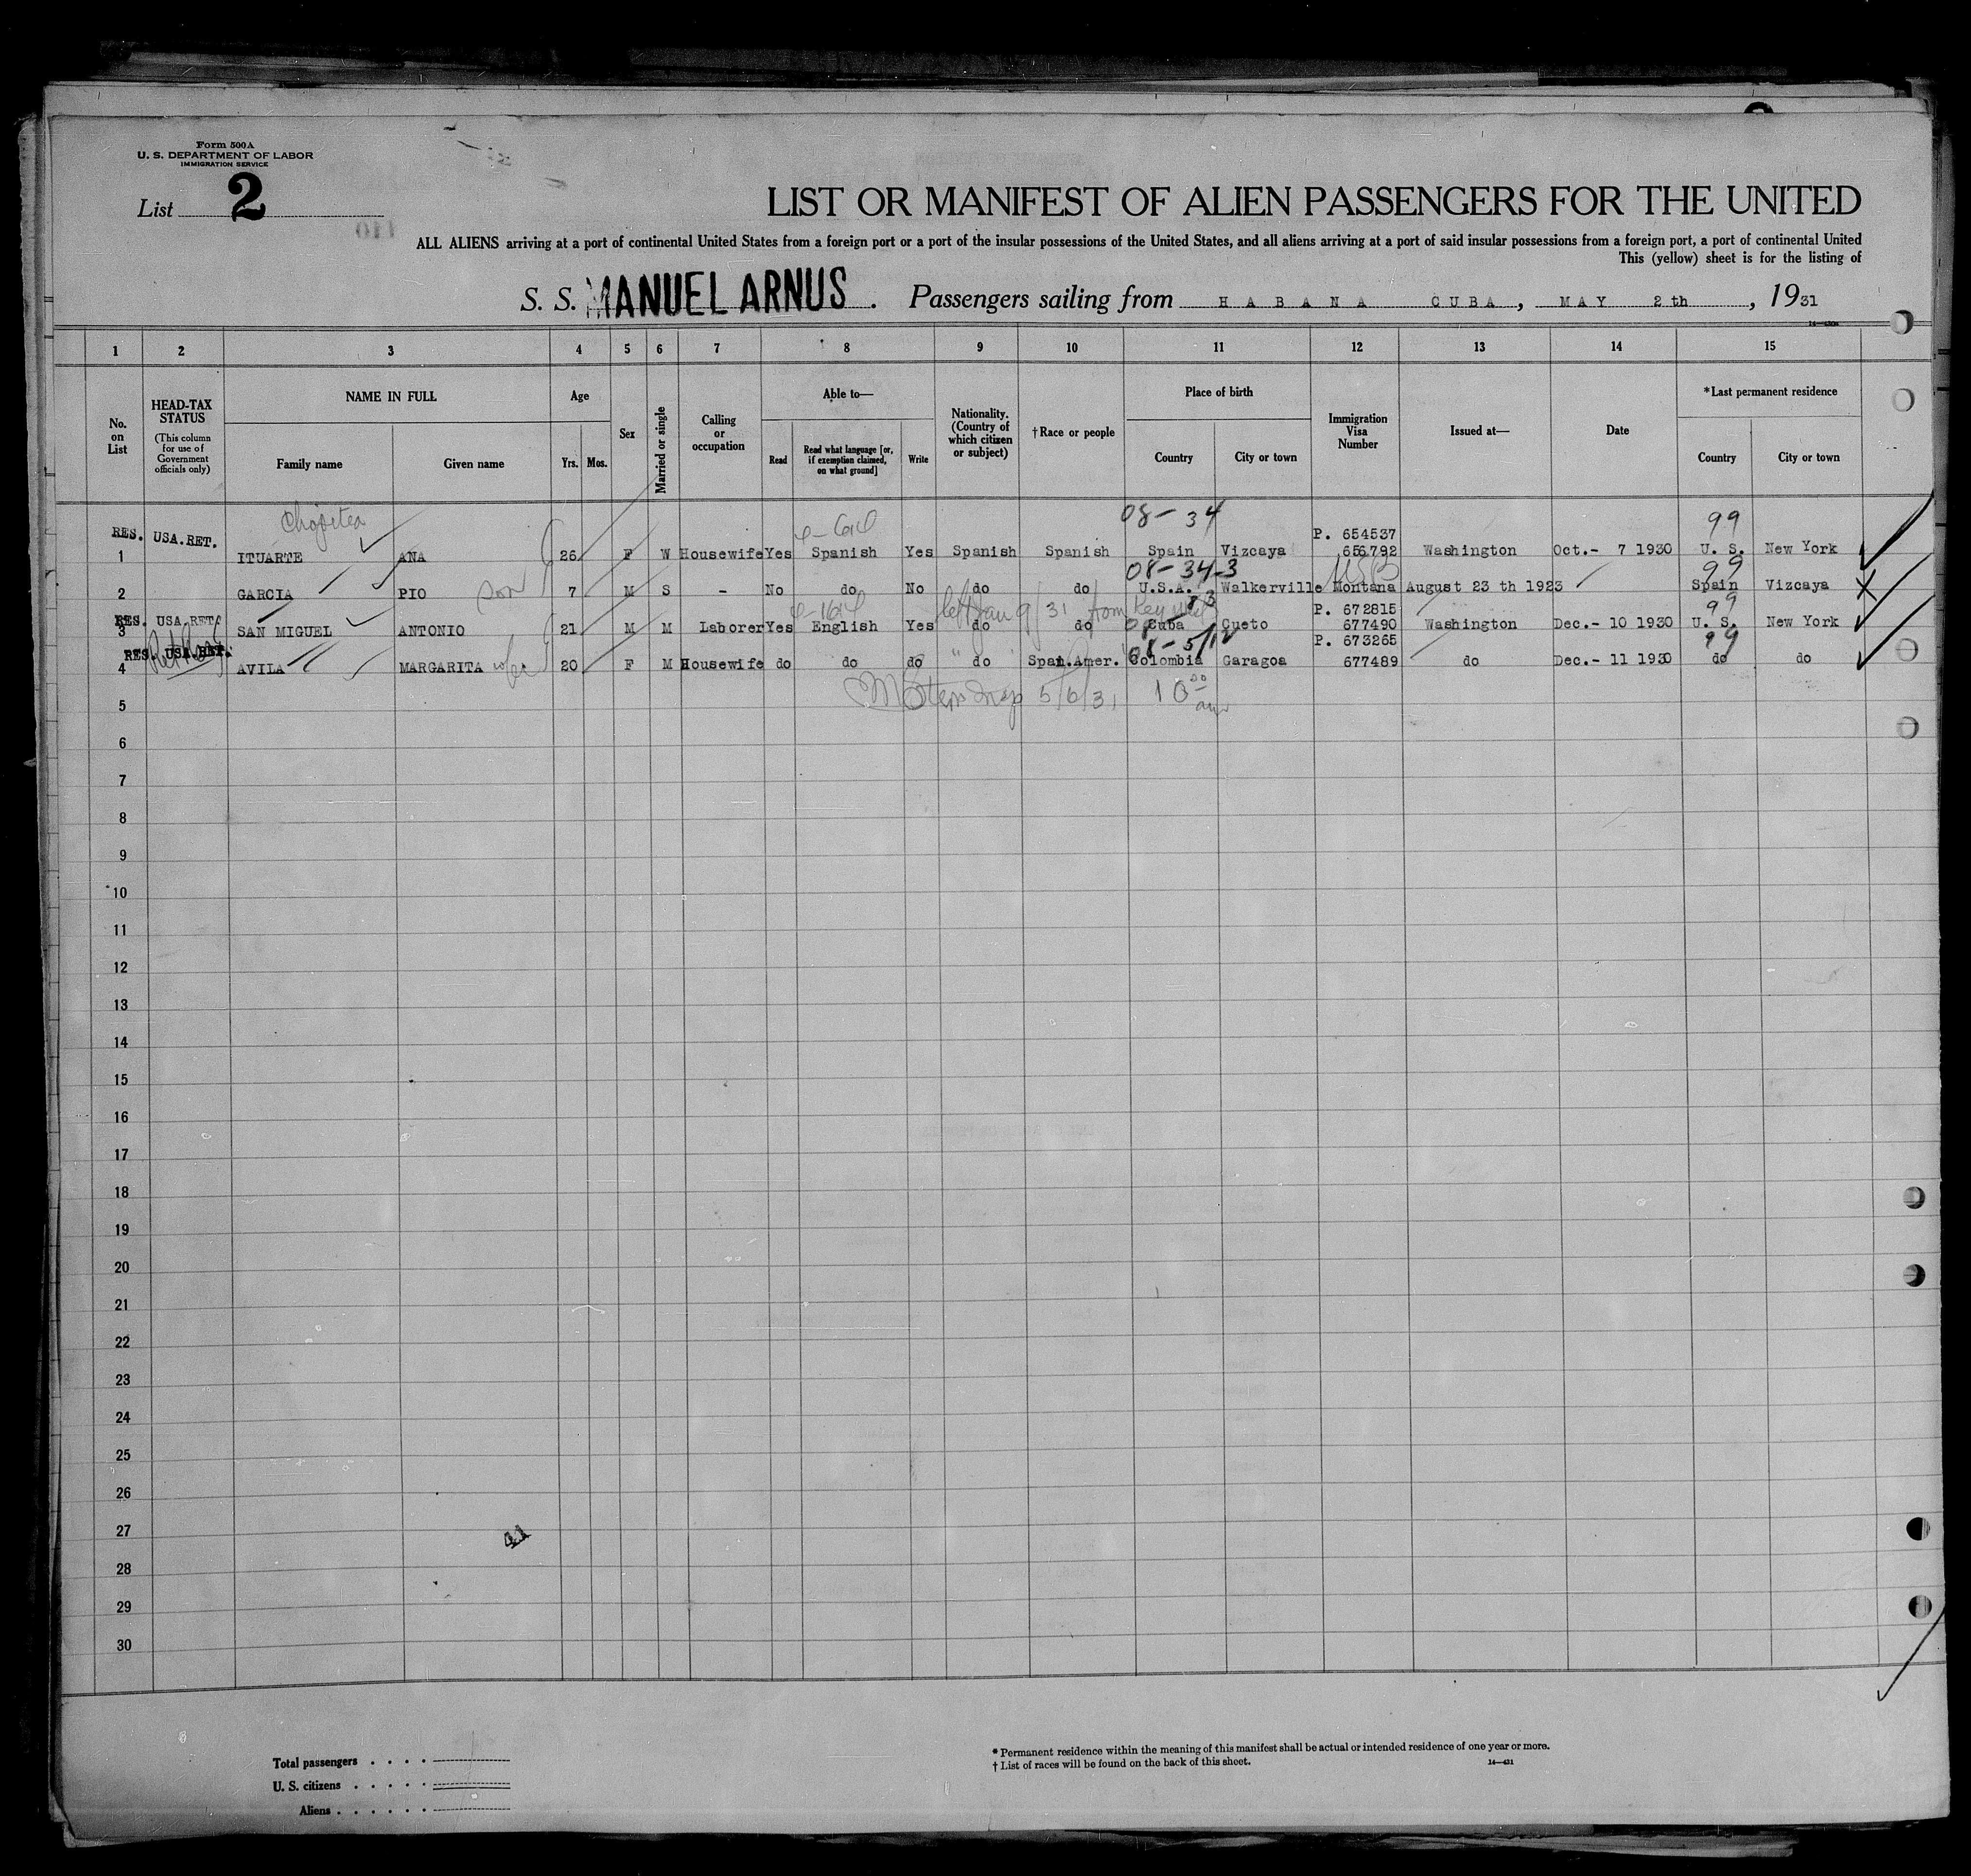 Form 500A
U. S. DEPARTMENT OF LABOR
IMMIGRATION SERVICE
List 2
LIST OR MANIFEST OF ALIEN PASSENGERS FOR THE UNITED
ALL ALIENS arriving at a port of continental United States from a foreign port or a port of the insular possessions of the United States, and all aliens arriving at a port of said insular possessions from a foreign port, a port of continental United
This (yellow) sheet is for the listing of
S. S. MANUEL ARNUS . Passengers sailing from HABANA CUBA , MAY 2th , 1931
1 2 3 4 5 6 7 8 9 10 11 12 13 14 15
No. on List
HEAD-TAX STATUS
(This column for use of Government officials only)
NAME IN FULL
Family name
Given name
Age
Yrs. Mos.
Sex
Married or single
Calling or occupation
Able to—
Read
Read what language [or, if exemption claimed, on what ground]
Write
Nationality. (Country of which citizen or subject)
†Race or people
Place of birth
Country
City or town
Immigration Visa Number
Issued at—
Date
*Last permanent residence
Country
City or town
08-34 99
RES. USA.RET. P. 654537
1 ITUARTE ANA 26 F W Housewife Yes Spanish Yes Spanish Spanish Spain Vizcaya 656792 Washington Oct.- 7 1930 U. S. New York
08-34-3 99
2 GARCIA PIO son 7 M S - No do No do do U.S.A. Walkerville Montana August 23 th 1923 Spain Vizcaya
left Jan 9/31 from Key West 99
RES. USA.RET. P. 672815
3 SAN MIGUEL ANTONIO 21 M M Laborer Yes English Yes do do Cuba Cueto 677490 Washington Dec.- 10 1930 U. S. New York
RES. USA.RET. 08-5/12 P. 673265 99
4 AVILA MARGARITA wife 20 F M Housewife do do do do Span.Amer. Colombia Garagoa 677489 do Dec.- 11 1930 do do
5 5/6/31 10
6
7
8
9
10
11
12
13
14
15
16
17
18
19
20
21
22
23
24
25
26
27
28
29
30
Total passengers . . . .
U. S. citizens . . . . .
Aliens . . . . . .
* Permanent residence within the meaning of this manifest shall be actual or intended residence of one year or more.
† List of races will be found on the back of this sheet.
14—431